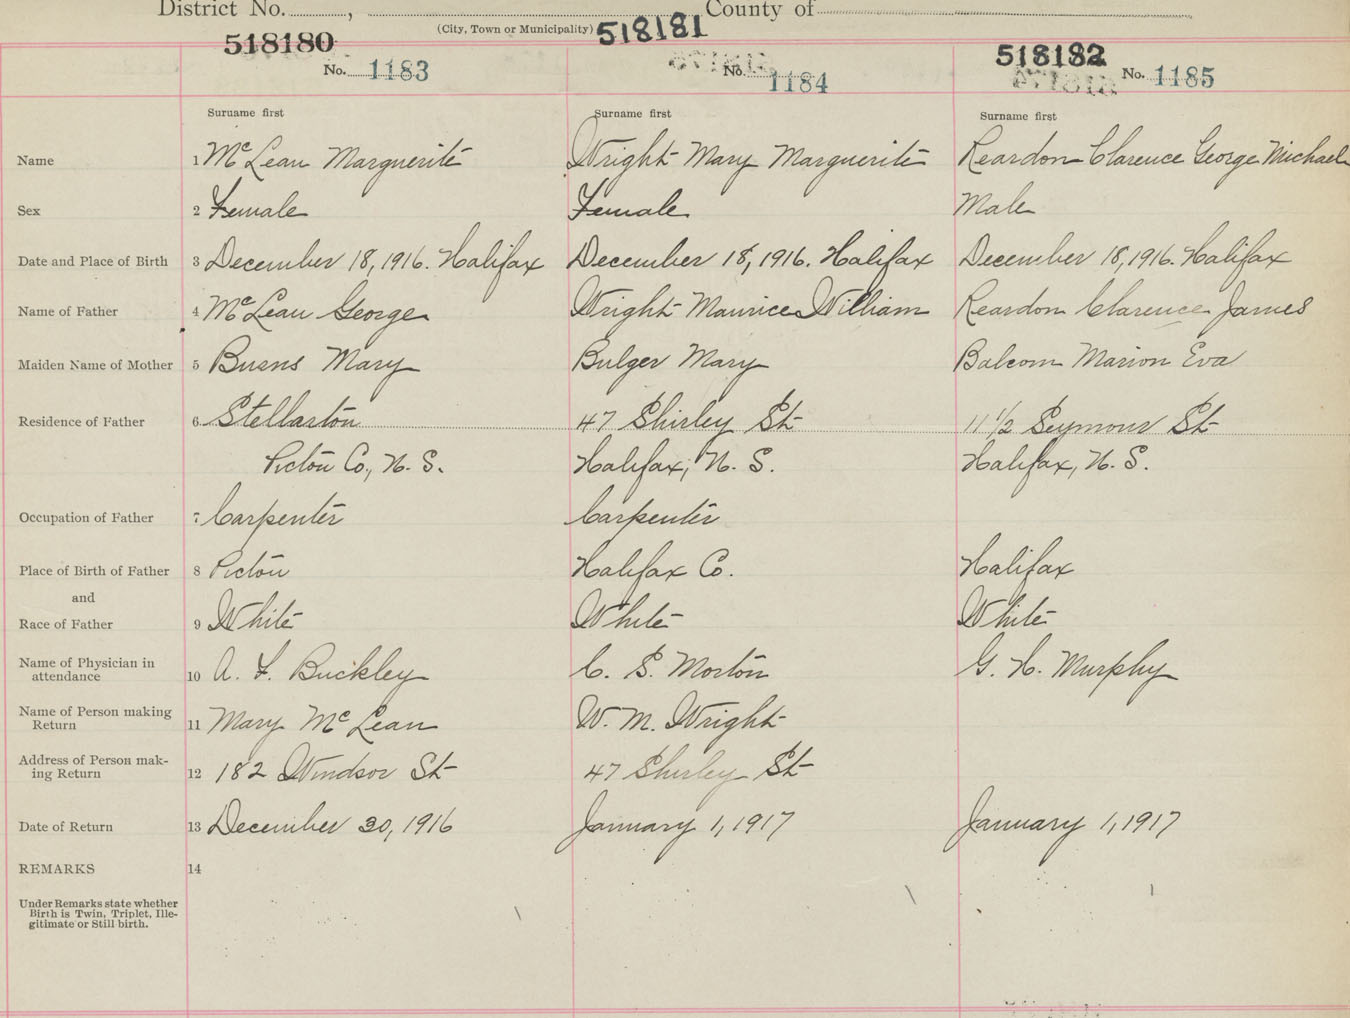 District No. , County of
(City, Town or Municipality)
518180 518181 518182
No. 1183 No. 1184 No. 1185
Surname first Surname first Surname first
Name 1 McLean Marguerite Wright Mary Marguerite Reardon Clarence George Michael
Sex 2 Female Female Male
Date and Place of Birth 3 December 18, 1916. Halifax December 18, 1916. Halifax December 18, 1916. Halifax
Name of Father 4 McLean George Wright Maurice William Reardon Clarence James
Maiden Name of Mother 5 Burns Mary Bulger Mary Balcom Marion Eva
Residence of Father 6 Stellarton 47 Shirley St 11 1/2 Seymour St
Pictou Co., N. S. Halifax, N. S. Halifax, N. S.
Occupation of Father 7 Carpenter Carpenter
Place of Birth of Father 8 Pictou Halifax Co. Halifax
and
Race of Father 9 White White White
Name of Physician in
attendance 10 A. F. Buckley C. S. Morton G. H. Murphy
Name of Person making
Return 11 Mary McLean W. M. Wright
Address of Person mak-
ing Return 12 182 Windsor St 47 Shirley St
Date of Return 13 December 30, 1916 January 1, 1917 January 1, 1917
REMARKS 14
Under Remarks state whether
Birth is Twin, Triplet, Ille-
gitimate or Still birth.